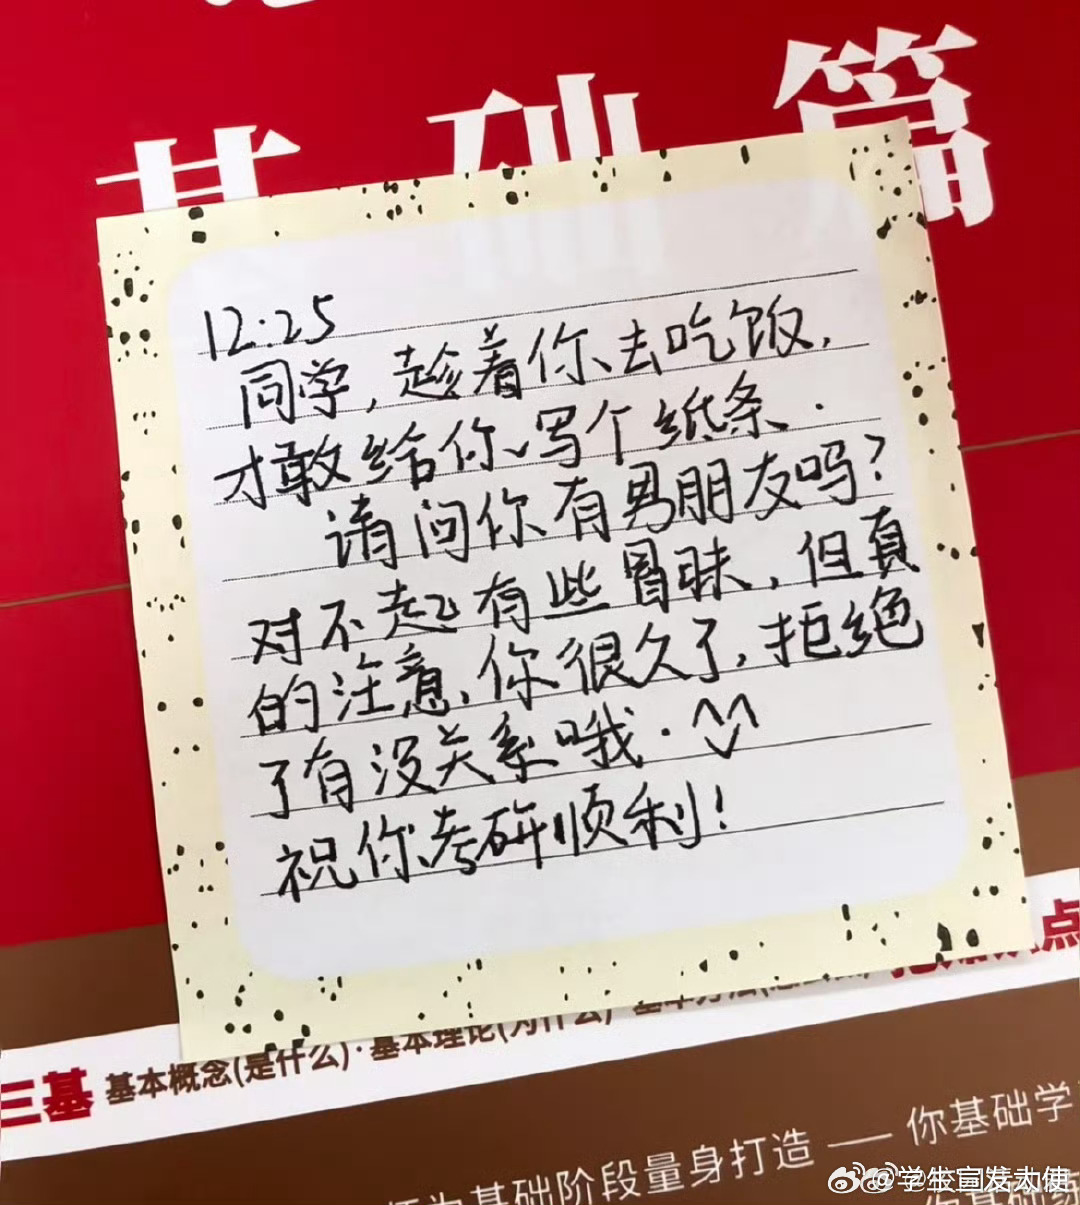 基础篇
12:25
同学,趁着你去吃饭,
才敢给你写个纸条.
请问你有男朋友吗?
对不起有些冒昧,但真
的注意,你很久了,拒绝
了有没关系哦.
祝你考研顺利!
点
三基 基本概念(是什么)·基本理论(为什么)·基本方法
量身打造 —— 你基础学
基础阶段